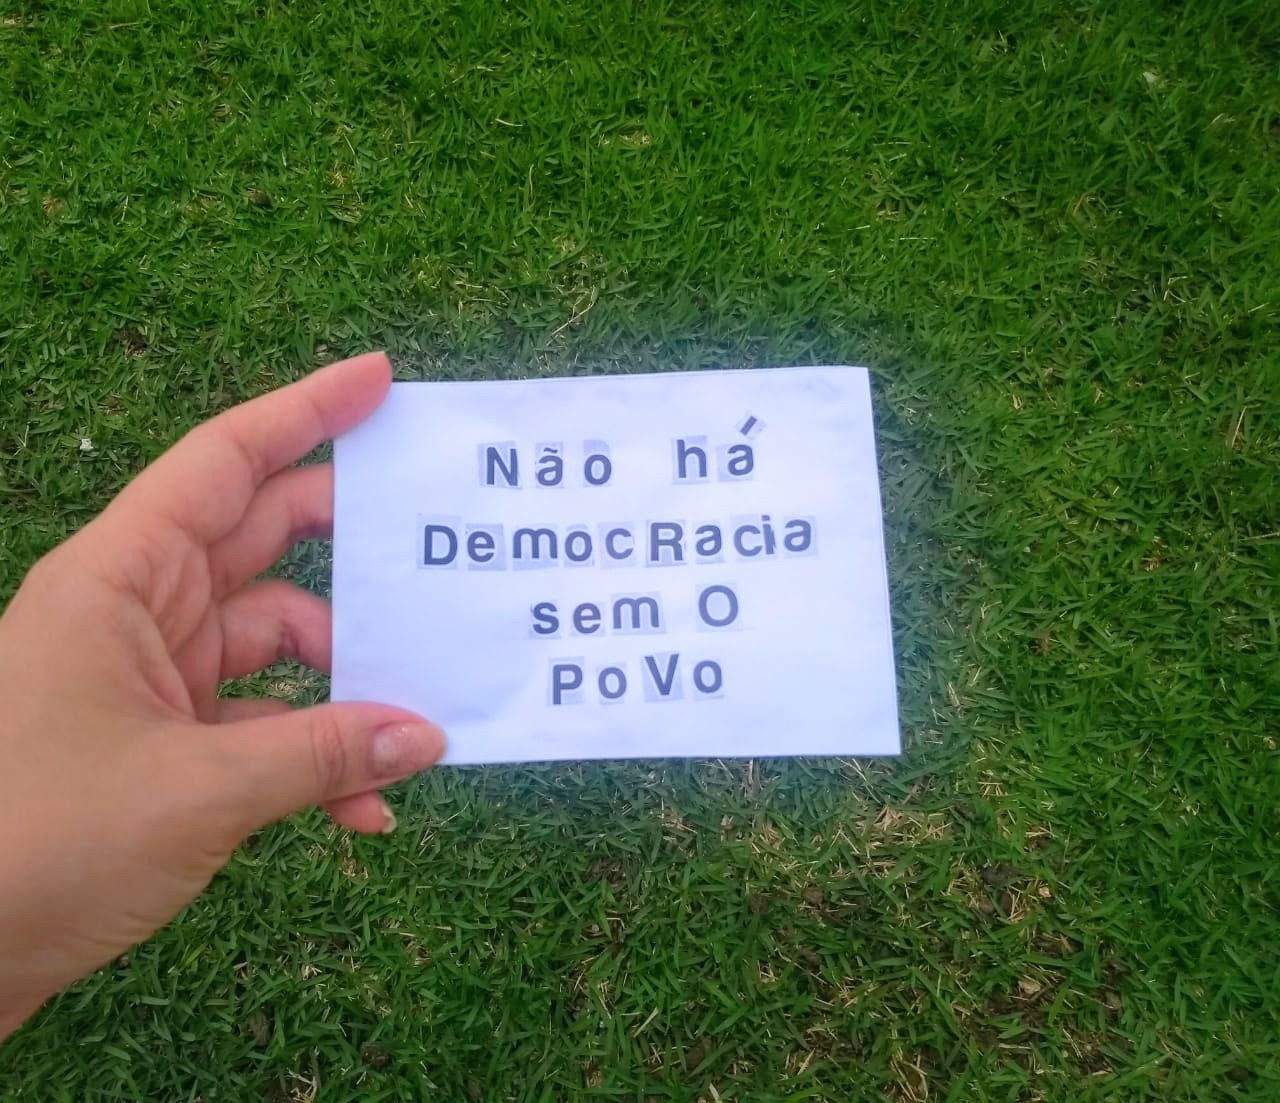 Não há
DemocRacia
sem O
PoVo